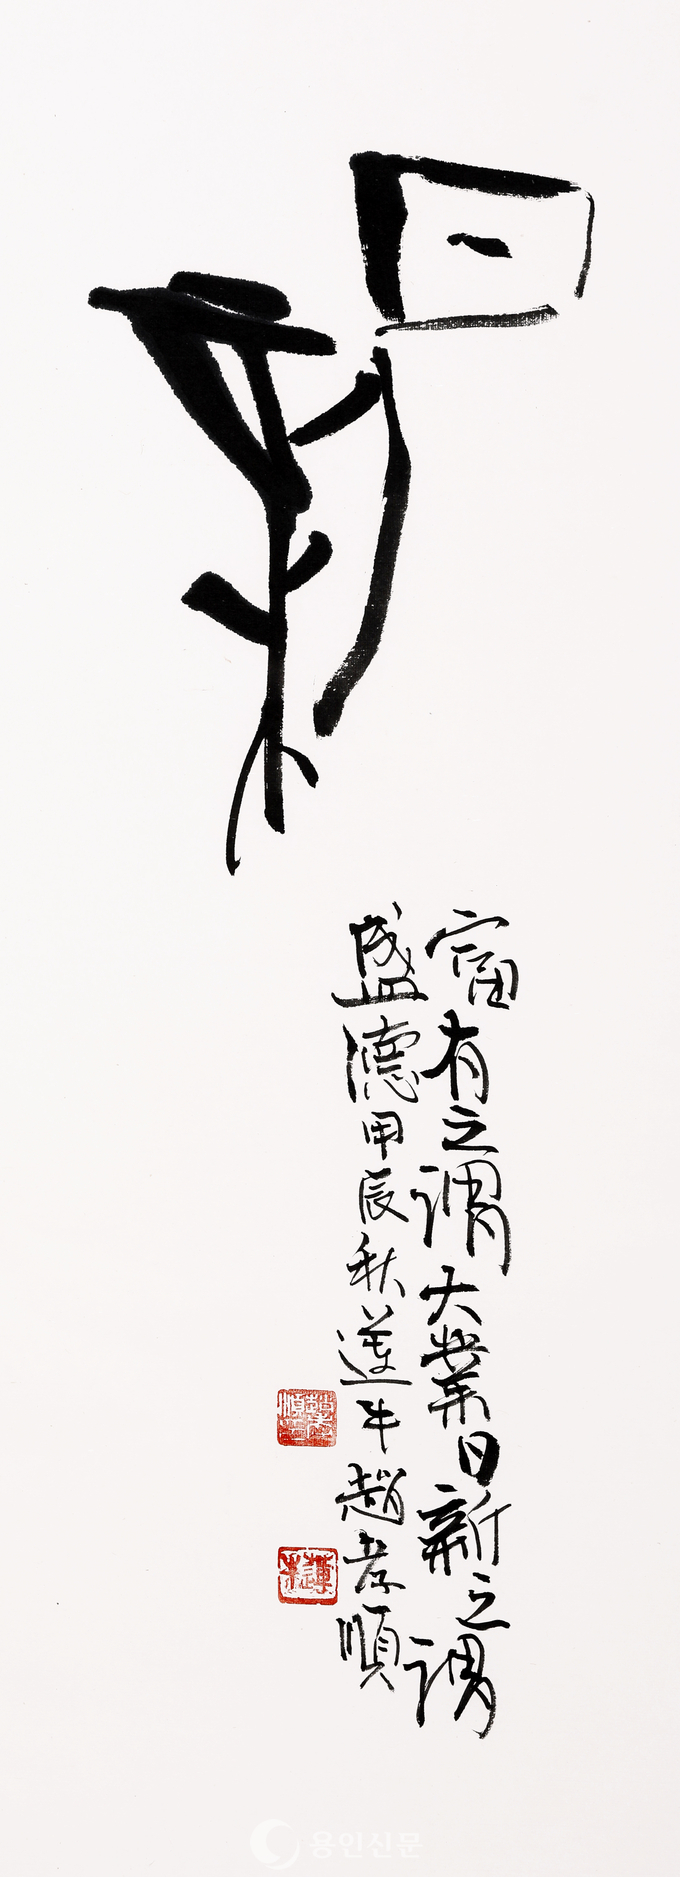 日新
富有之謂大業日新之謂
盛德甲辰秋蓮牛趙孝順
용인신문